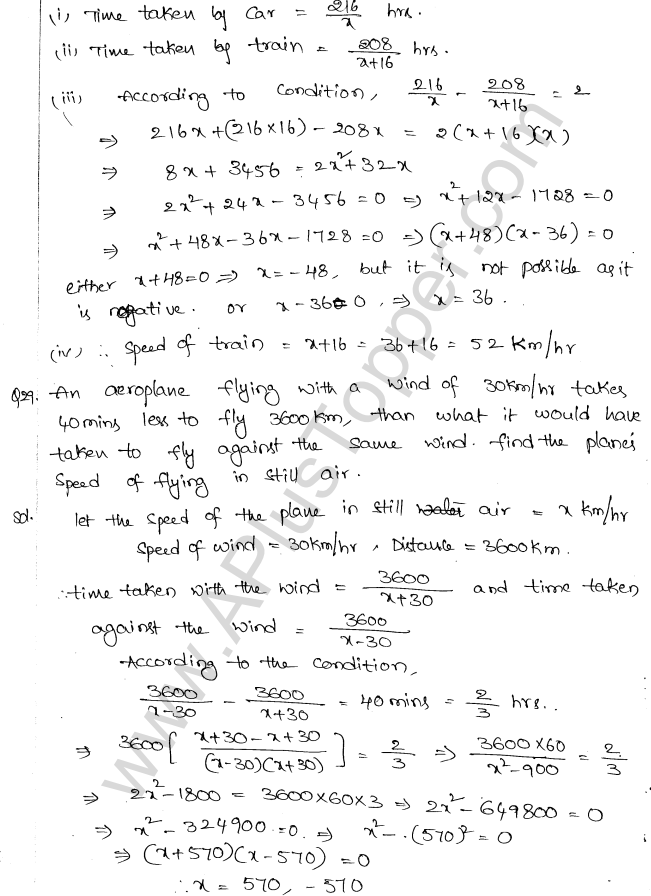 (i) Time taken by car = 216/x hrs.
(ii) Time taken by train = 208/x+16 hrs.
(iii) According to Condition, 216/x - 208/x+16 = 2
⇒ 216x+(216×16) - 208x = 2(x+16)(x)
⇒ 8x + 3456 = 2x²+32x
⇒ 2x²+24x - 3456 = 0 ⇒ x²+12x - 1728 = 0
⇒ x²+48x-36x-1728 = 0 ⇒ (x+48)(x-36) = 0
either x+48=0 ⇒ x=-48, but it is not possible as it
is negative. or x-36=0, ⇒ x = 36.
(iv) ∴ Speed of train = x+16 = 36+16 = 52 km/hr
Q29. An aeroplane flying with a wind of 30km/hr takes
40mins less to fly 3600km, than what it would have
taken to fly against the same wind. find the plane's
Speed of flying in still air.
Sol. let the speed of the plane in still water air = x km/hr
Speed of wind = 30km/hr, Distance = 3600km.
∴ time taken with the wind = 3600/x+30 and time taken
against the wind = 3600/x-30
According to the condition,
3600/x-30 - 3600/x+30 = 40mins = 2/3 hrs..
⇒ 3600[x+30-x+30/(x-30)(x+30)] = 2/3 ⇒ 3600×60/x²-900 = 2/3
⇒ 2x²-1800 = 3600×60×3 ⇒ 2x²-649800 = 0
⇒ x²-324900 = 0. ⇒ x²-.(570)² = 0
⇒ (x+570)(x-570) = 0
∴ x = 570, -570
www.APlusTopper.com